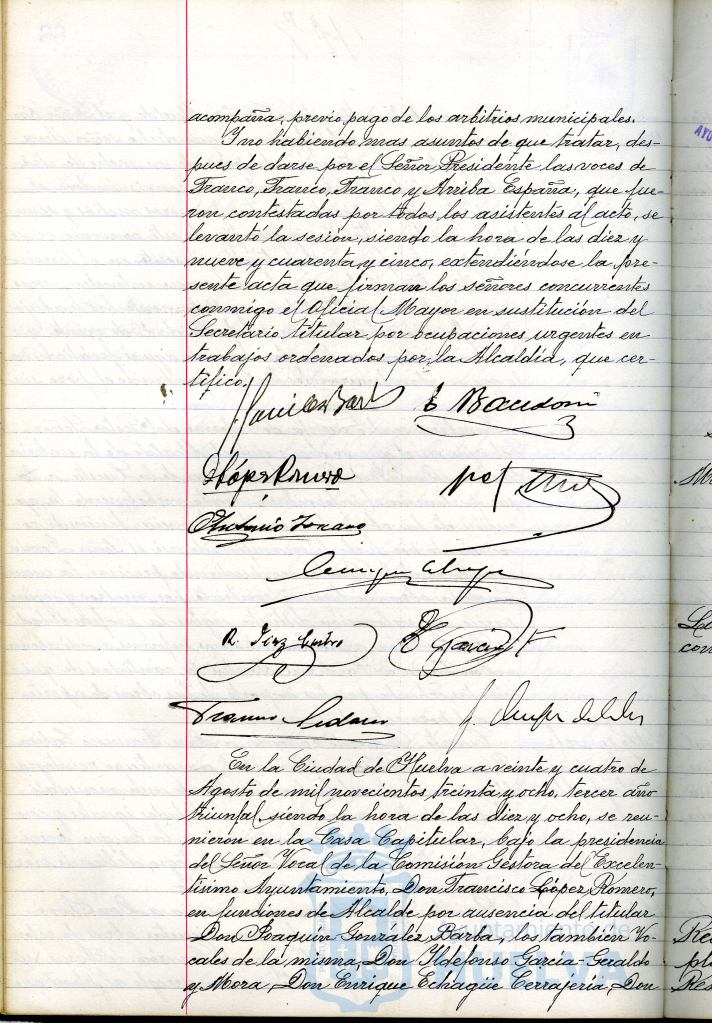 acompaña, previo pago de los arbitrios municipales.
Y no habiendo mas asuntos de que tratar, des-
pues de darse por el Señor Presidente las voces de
Franco, Franco, Franco y Arriba España, que fue-
ron contestadas por todos los asistentes al acto, se
levantó la sesión, siendo la hora de las diez y
nueve y cuarenta y cinco, extendiéndose la pre-
sente acta que firman los señores concurrentes
conmigo el Oficial Mayor en sustitución del
Secretario titular por ocupaciones urgentes en
trabajos ordenados por la Alcaldía, que cer-
tifico.
López Romero
Antonio
R. Diaz
E Garcia
En la Ciudad de Huelva a veinte y cuatro de
Agosto de mil novecientos treinta y ocho, tercer año
triunfal, siendo la hora de las diez y ocho, se reu-
nieron en la Casa Capitular, bajo la presidencia
del Señor Vocal de la Comisión Gestora del Excelen-
tísimo Ayuntamiento, Don Francisco López Romero,
en funciones de Alcalde por ausencia del titular
Don Joaquín González Barba, los también Vo-
cales de la misma, Don Ildefonso García-Geraldo
y Mora, Don Enrique Echagüe Cerrajería, Don
Ayuntamiento de
HUELVA